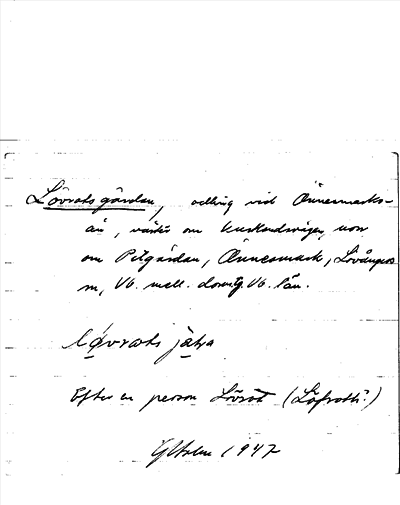 Lövratsgärdan, odling vid Ånnesmarks-
ån, väster om kustlandsvägen, norr
om Pitgärdan, Ånnesmark, Lövångers
sn, Vb. mell. domsg. Vb. län.
lóvrats jäḷa
Efter en person Lövrat (Löfrott?)
G Holm 1947